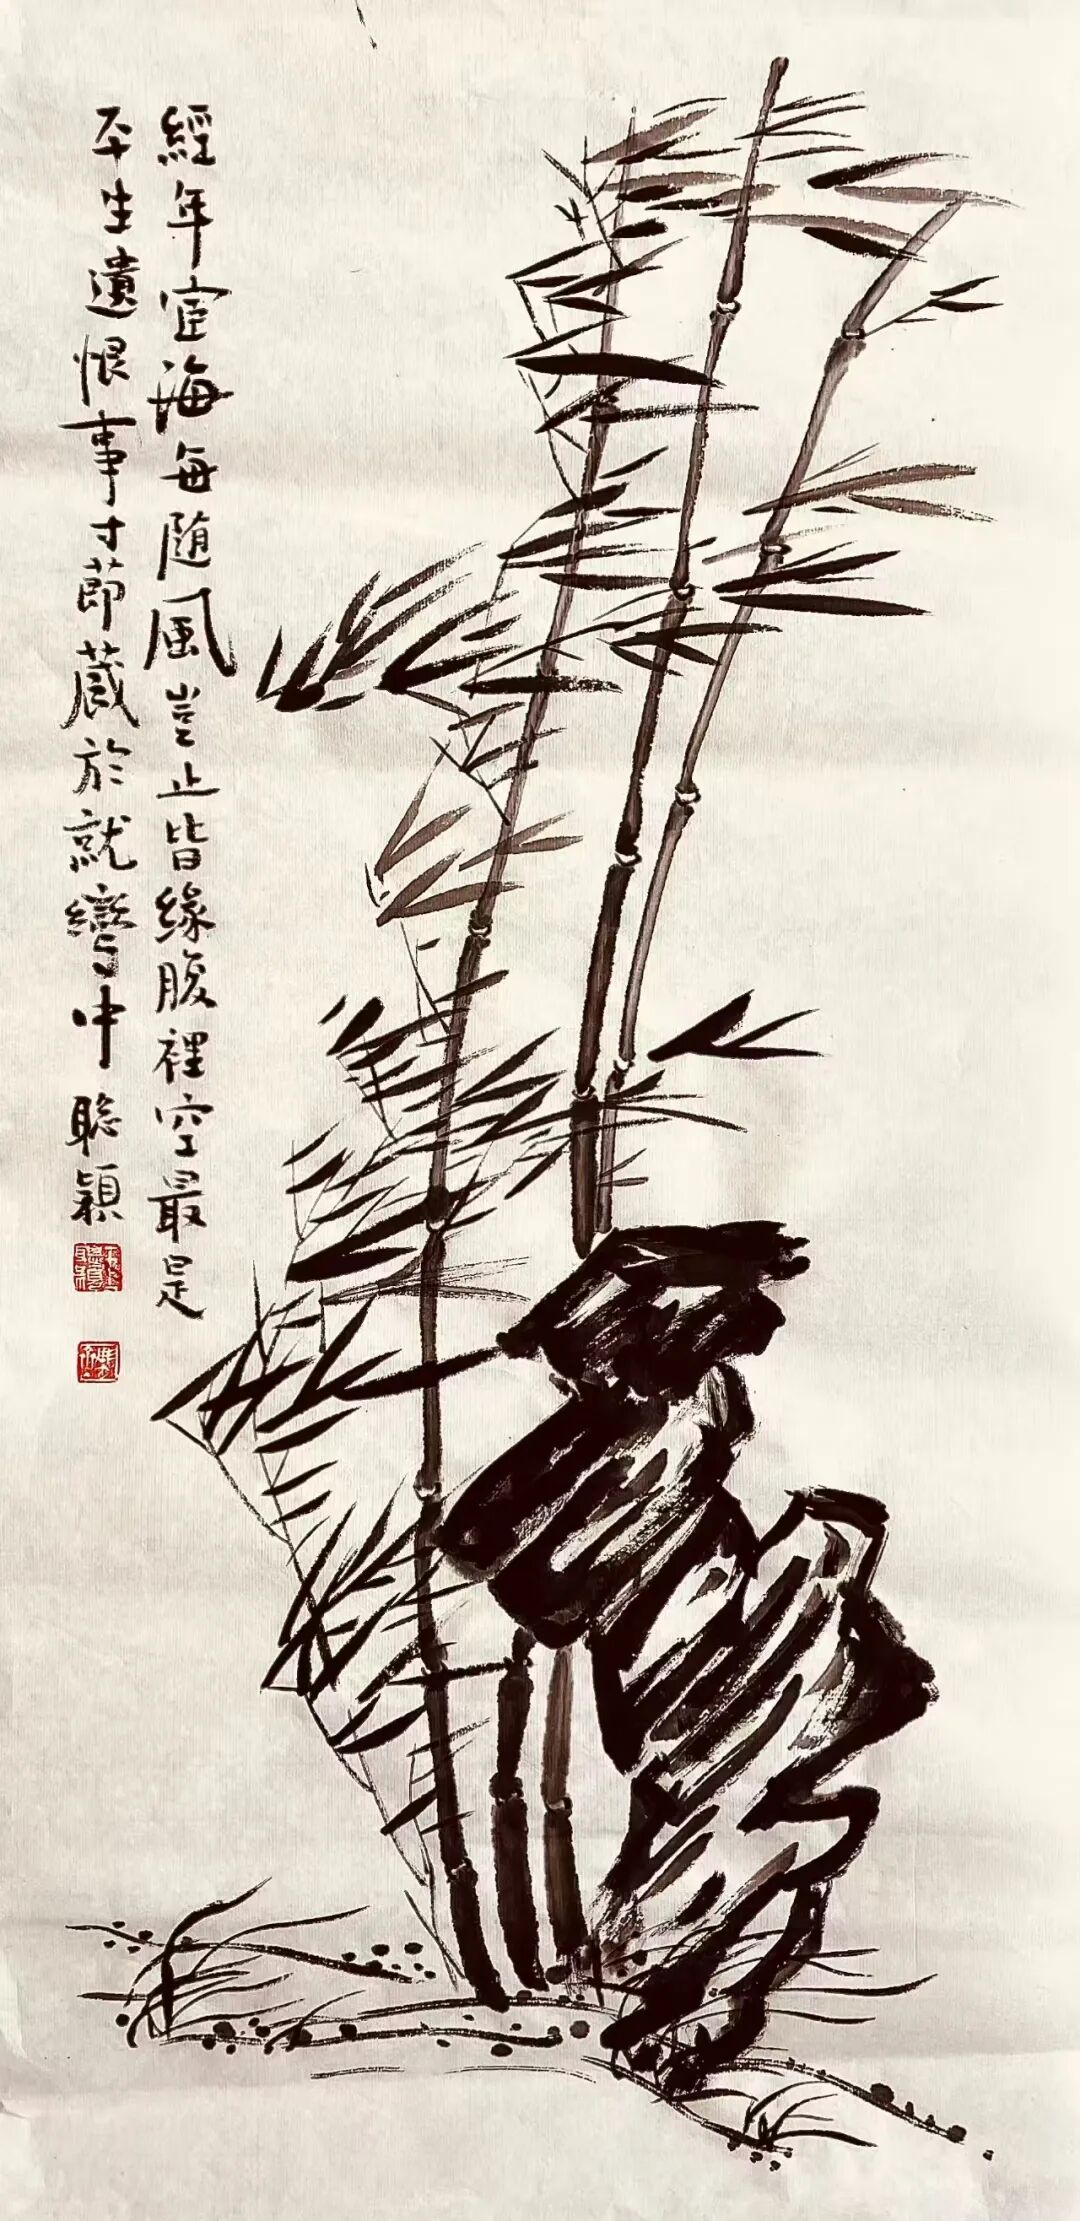 經年宦海每随風豈止皆緣腹裡空最是
平生遺恨事寸節蔵於就彎中 聡穎